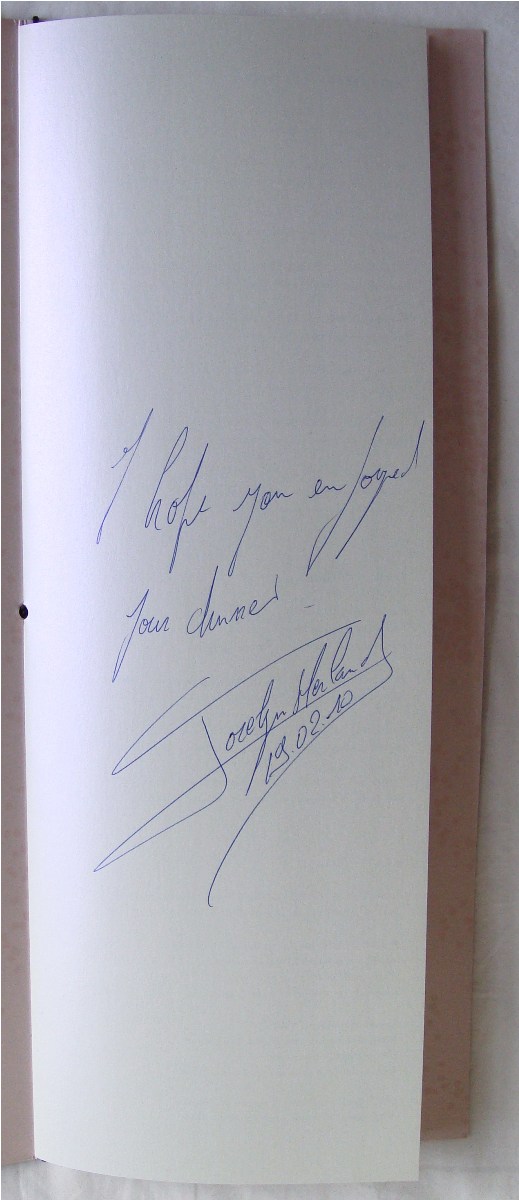 I hope you enjoyed
your dinner.
Jocelyn Herland
19.02.10